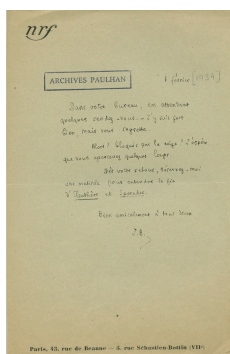 nrf
ARCHIVES PAULHAN
1 février [1934]
Dans votre bureau, en attendant
quelques rendez-vous – j'y suis fort
bien, mais vous regrette.
Hélas! bloqués par la neige! J'espère
que vous
Dès votre retour, -moi
une matinée pour entendre la fin
d' et
Bien amicalement à tous deux
Paris, 43, rue de Beaune — 5, rue Sébastien-Bottin (VIIᵉ)